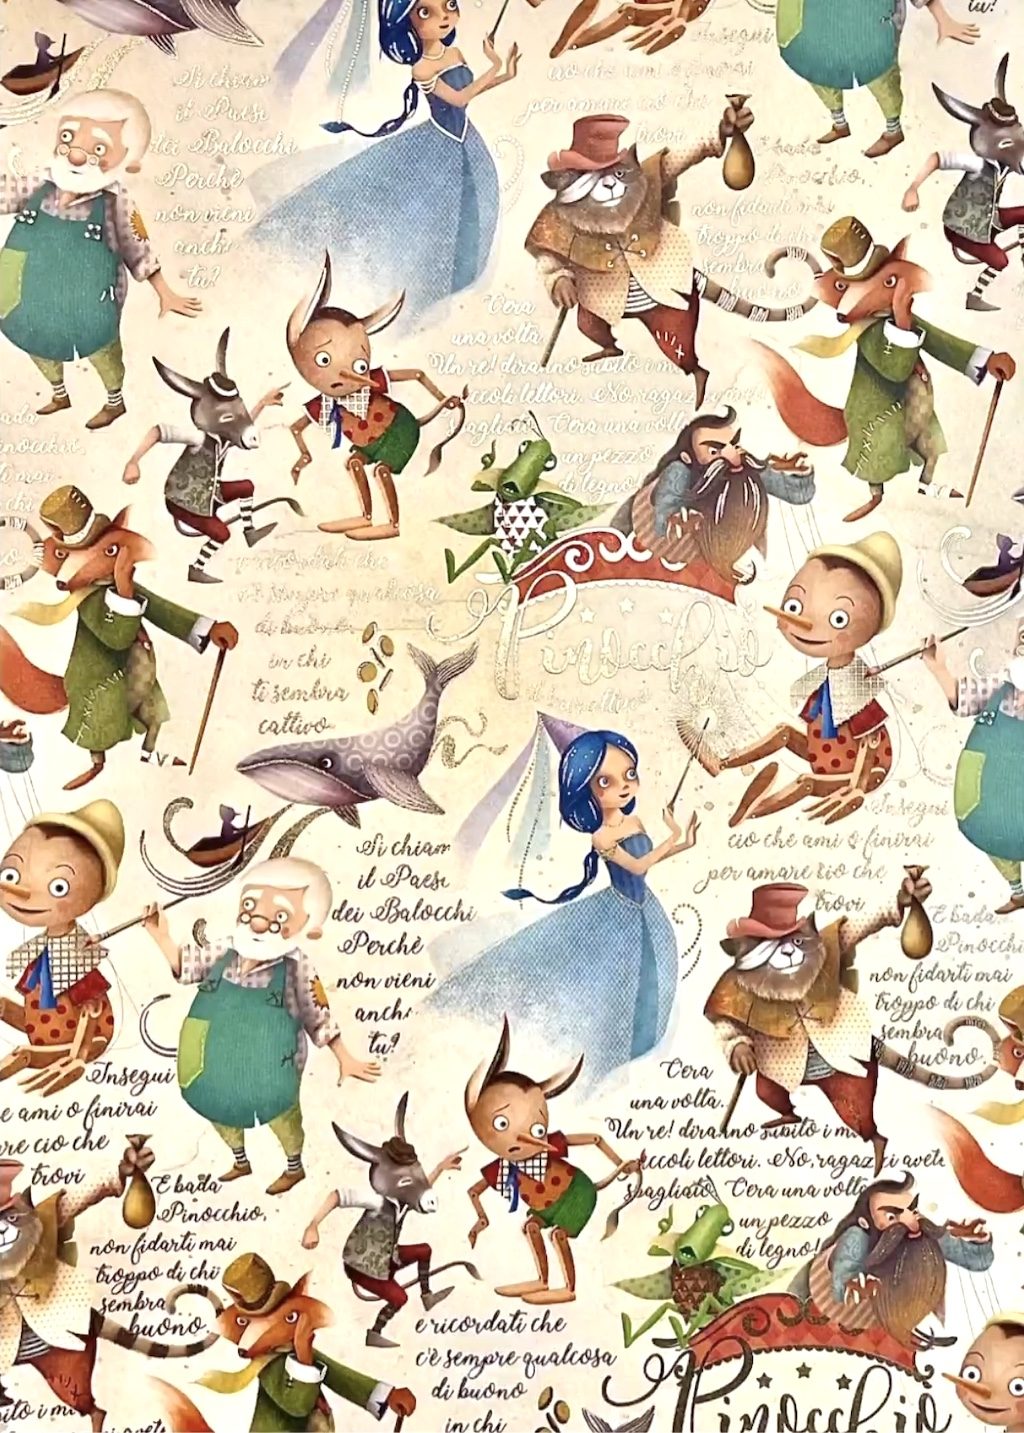 Insegui
ciò che ami o finirai
per amare ciò che
trovi
Si chiam
il Paese
dei Balocchi
Perchè
non vieni
anche
tu?
E bada
Pinocchio,
non fidarti mai
troppo di chi
sembra
buono.
C'era
una volta.
Un re! diranno subito i m
ccoli lettori. No, ragazzi
sbagliato. C'era una volta
un pezzo
di legno!
bada
inocchio,
c'è sempre qualcosa
di buono
in chi
ti sembra
cattivo
Pinocchiò
Insegui
ciò che ami o finirai
per amare ciò che
trovi
Si chiam
il Paese
dei Balocchi
Perchè
non vieni
anche
tu?
E bada
Pinocchi
non fidarti mai
troppo di chi
sembra
buono.
C'era
una volta.
Un re! diranno subito i m
ccoli lettori. No, ragazzi avete
sbagliato. C'era una volta
un pezzo
di legno!
Insegui
e ami o finirai
re ciò che
trovi
E bada
Pinocchio,
non fidarti mai
troppo di chi
sembra
buono.
e ricordati che
c'è sempre qualcosa
di buono
in chi
Pinocchiò